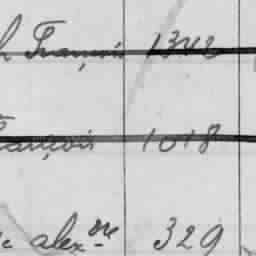 François 1348
François 1018
alexdre 329